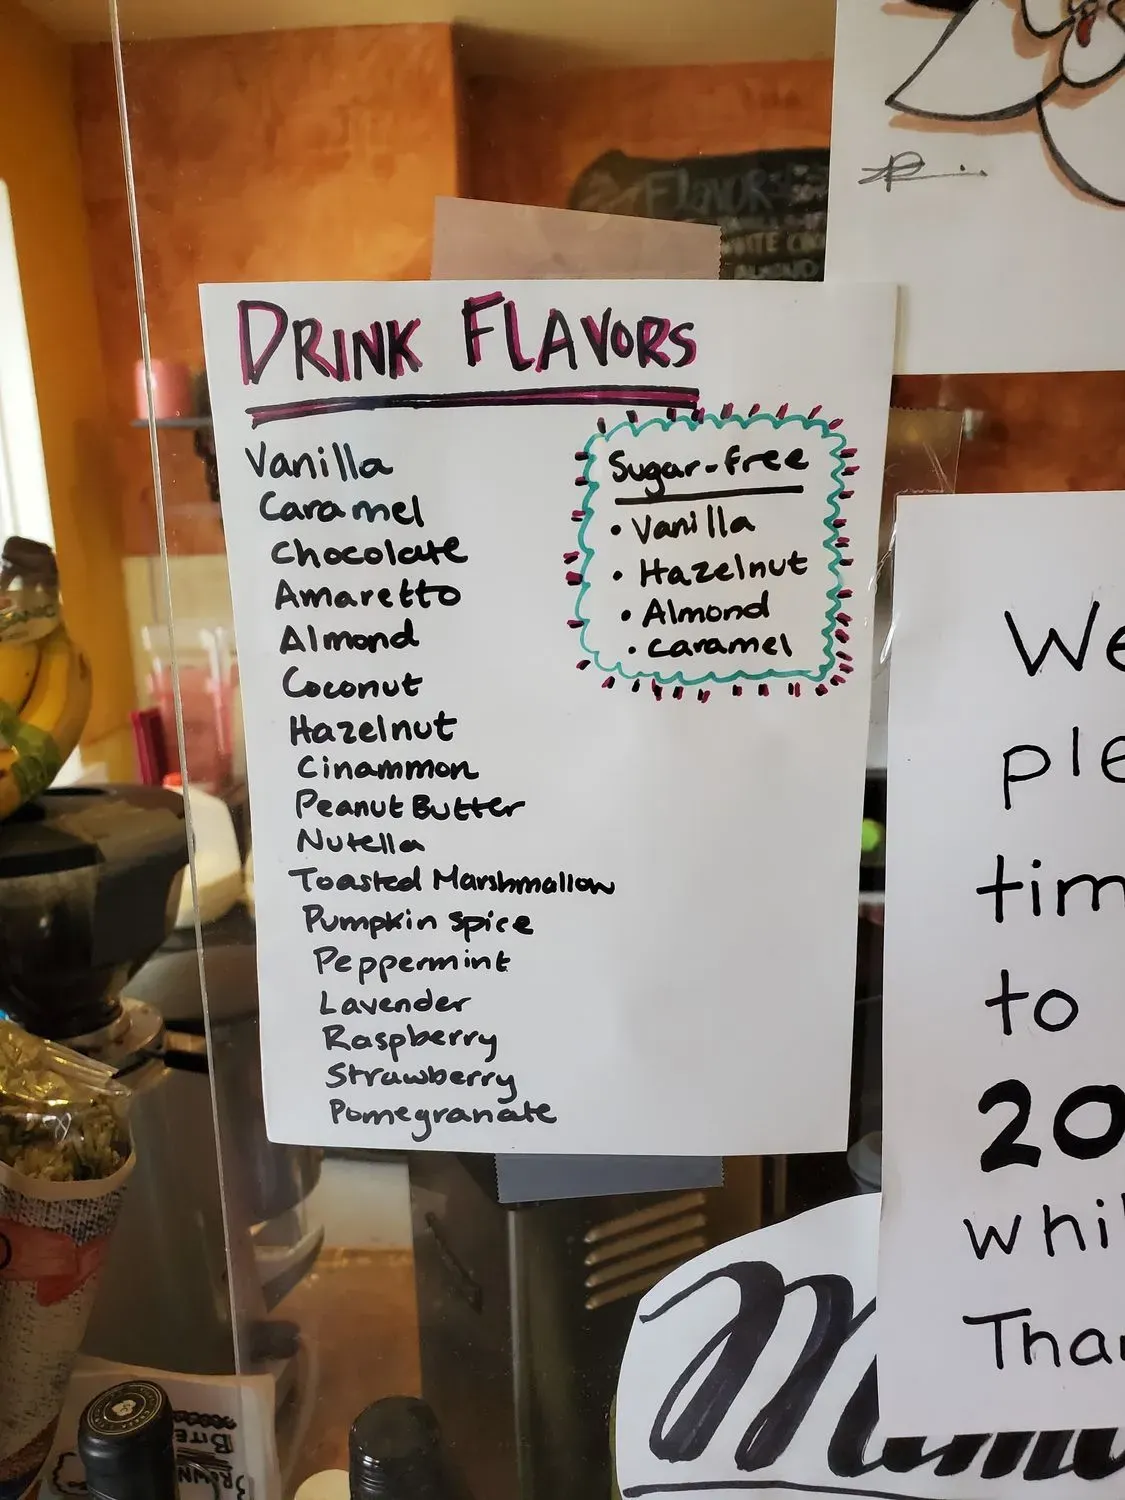 FLAVORS
WHITE
ALMOND
DRINK FLAVORS
Vanilla
Caramel
Chocolate
Amaretto
Almond
Coconut
Hazelnut
Cinammon
Peanut Butter
Nutella
Toasted Marshmallow
Pumpkin spice
Peppermint
Lavender
Raspberry
Strawberry
Pomegranate
Sugar-free
• Vanilla
• Hazelnut
• Almond
• caramel
We
ple
tim
to
20
whil
Than